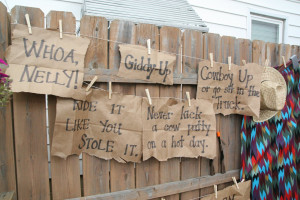 WHOA,
NELLY!
Giddy-Up
Cowboy Up
or go sit in the
truck.
RIDE IT
LIKE YOU
STOLE IT.
Never kick
a cow patty
on a hot day.